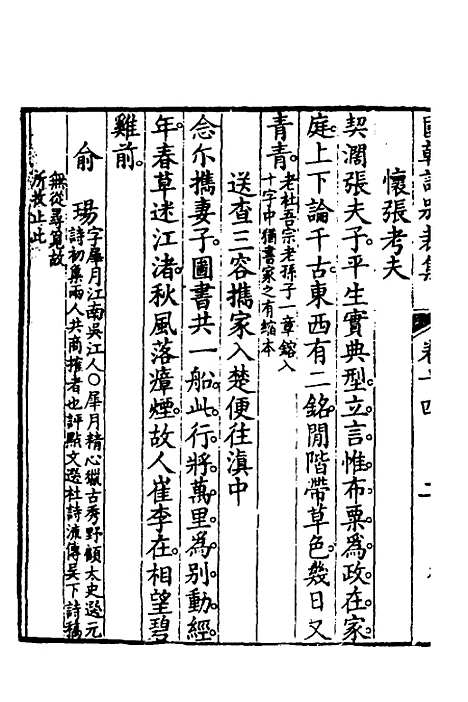 國朝詩別裁集 卷十四 二
懷張考夫
契濶張夫子。平生實典型。立言惟布粟。為政在家
庭。上下論千古。東西有二銘。閒階帶草色。幾日又
青青。老杜吾宗老孫子一章鎔入
十字中猶書家之有縮本
送查三容攜家入楚便往滇中
念尔攜妻子。圖書共一船。此行將萬里。為別動經
年。春草迷江渚。秋風落瘴煙。故人崔李在。相望碧
雞前。
俞瑒 字犀月江南吳江人○犀月精心獵古秀野顧太史選元
詩初集兩人共商搉者也評點文選杜詩流傳吳下詩稿
無從尋覓故
所收止此